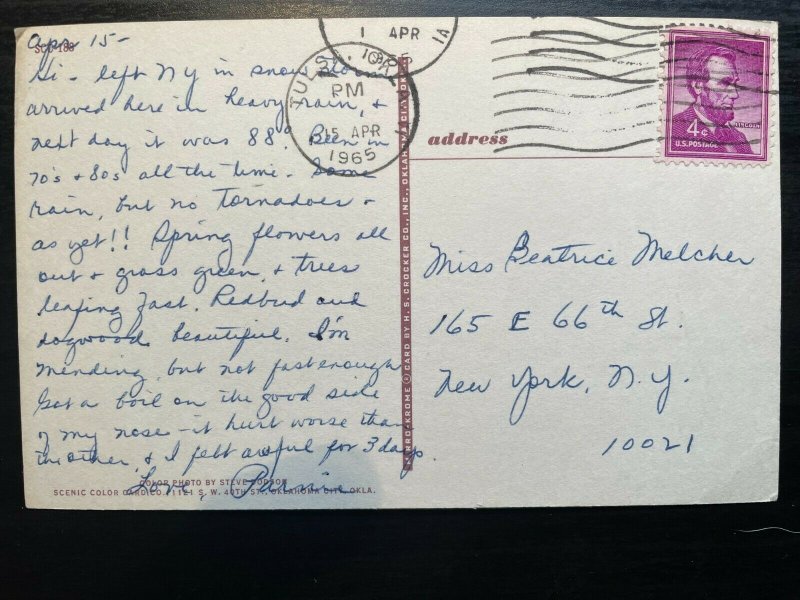 Apr 15-
SCC 188
Hi - left NY in snow storm
arrived here in heavy rain, &
next day it was 88°. Been in
70s & 80s all the time. Some
rain, but no Tornadoes -
as yet!! Spring flowers all
out & grass green, & trees
leafing fast. Redbud and
dogwood beautiful. I'm
mending, but not fast enough
Got a boil on the good side
of my nose - it hurt worse than
the other, & I felt awful for 3 days.
Love,
COLOR PHOTO BY STEVE DODSON
SCENIC COLOR CARD CO. 1121 S. W. 40TH ST. OKLAHOMA CITY, OKLA.
MIRRO-KROME © CARD BY H. S. CROCKER CO., INC., OKLAHOMA CITY, OKLA.
1 APR 1A
TULSA, OKLA
PM
15 APR
1965
address
4¢
LINCOLN
U.S. POSTAGE
Miss Beatrice Melcher
165 E 66th St.
New York, N.Y.
10021